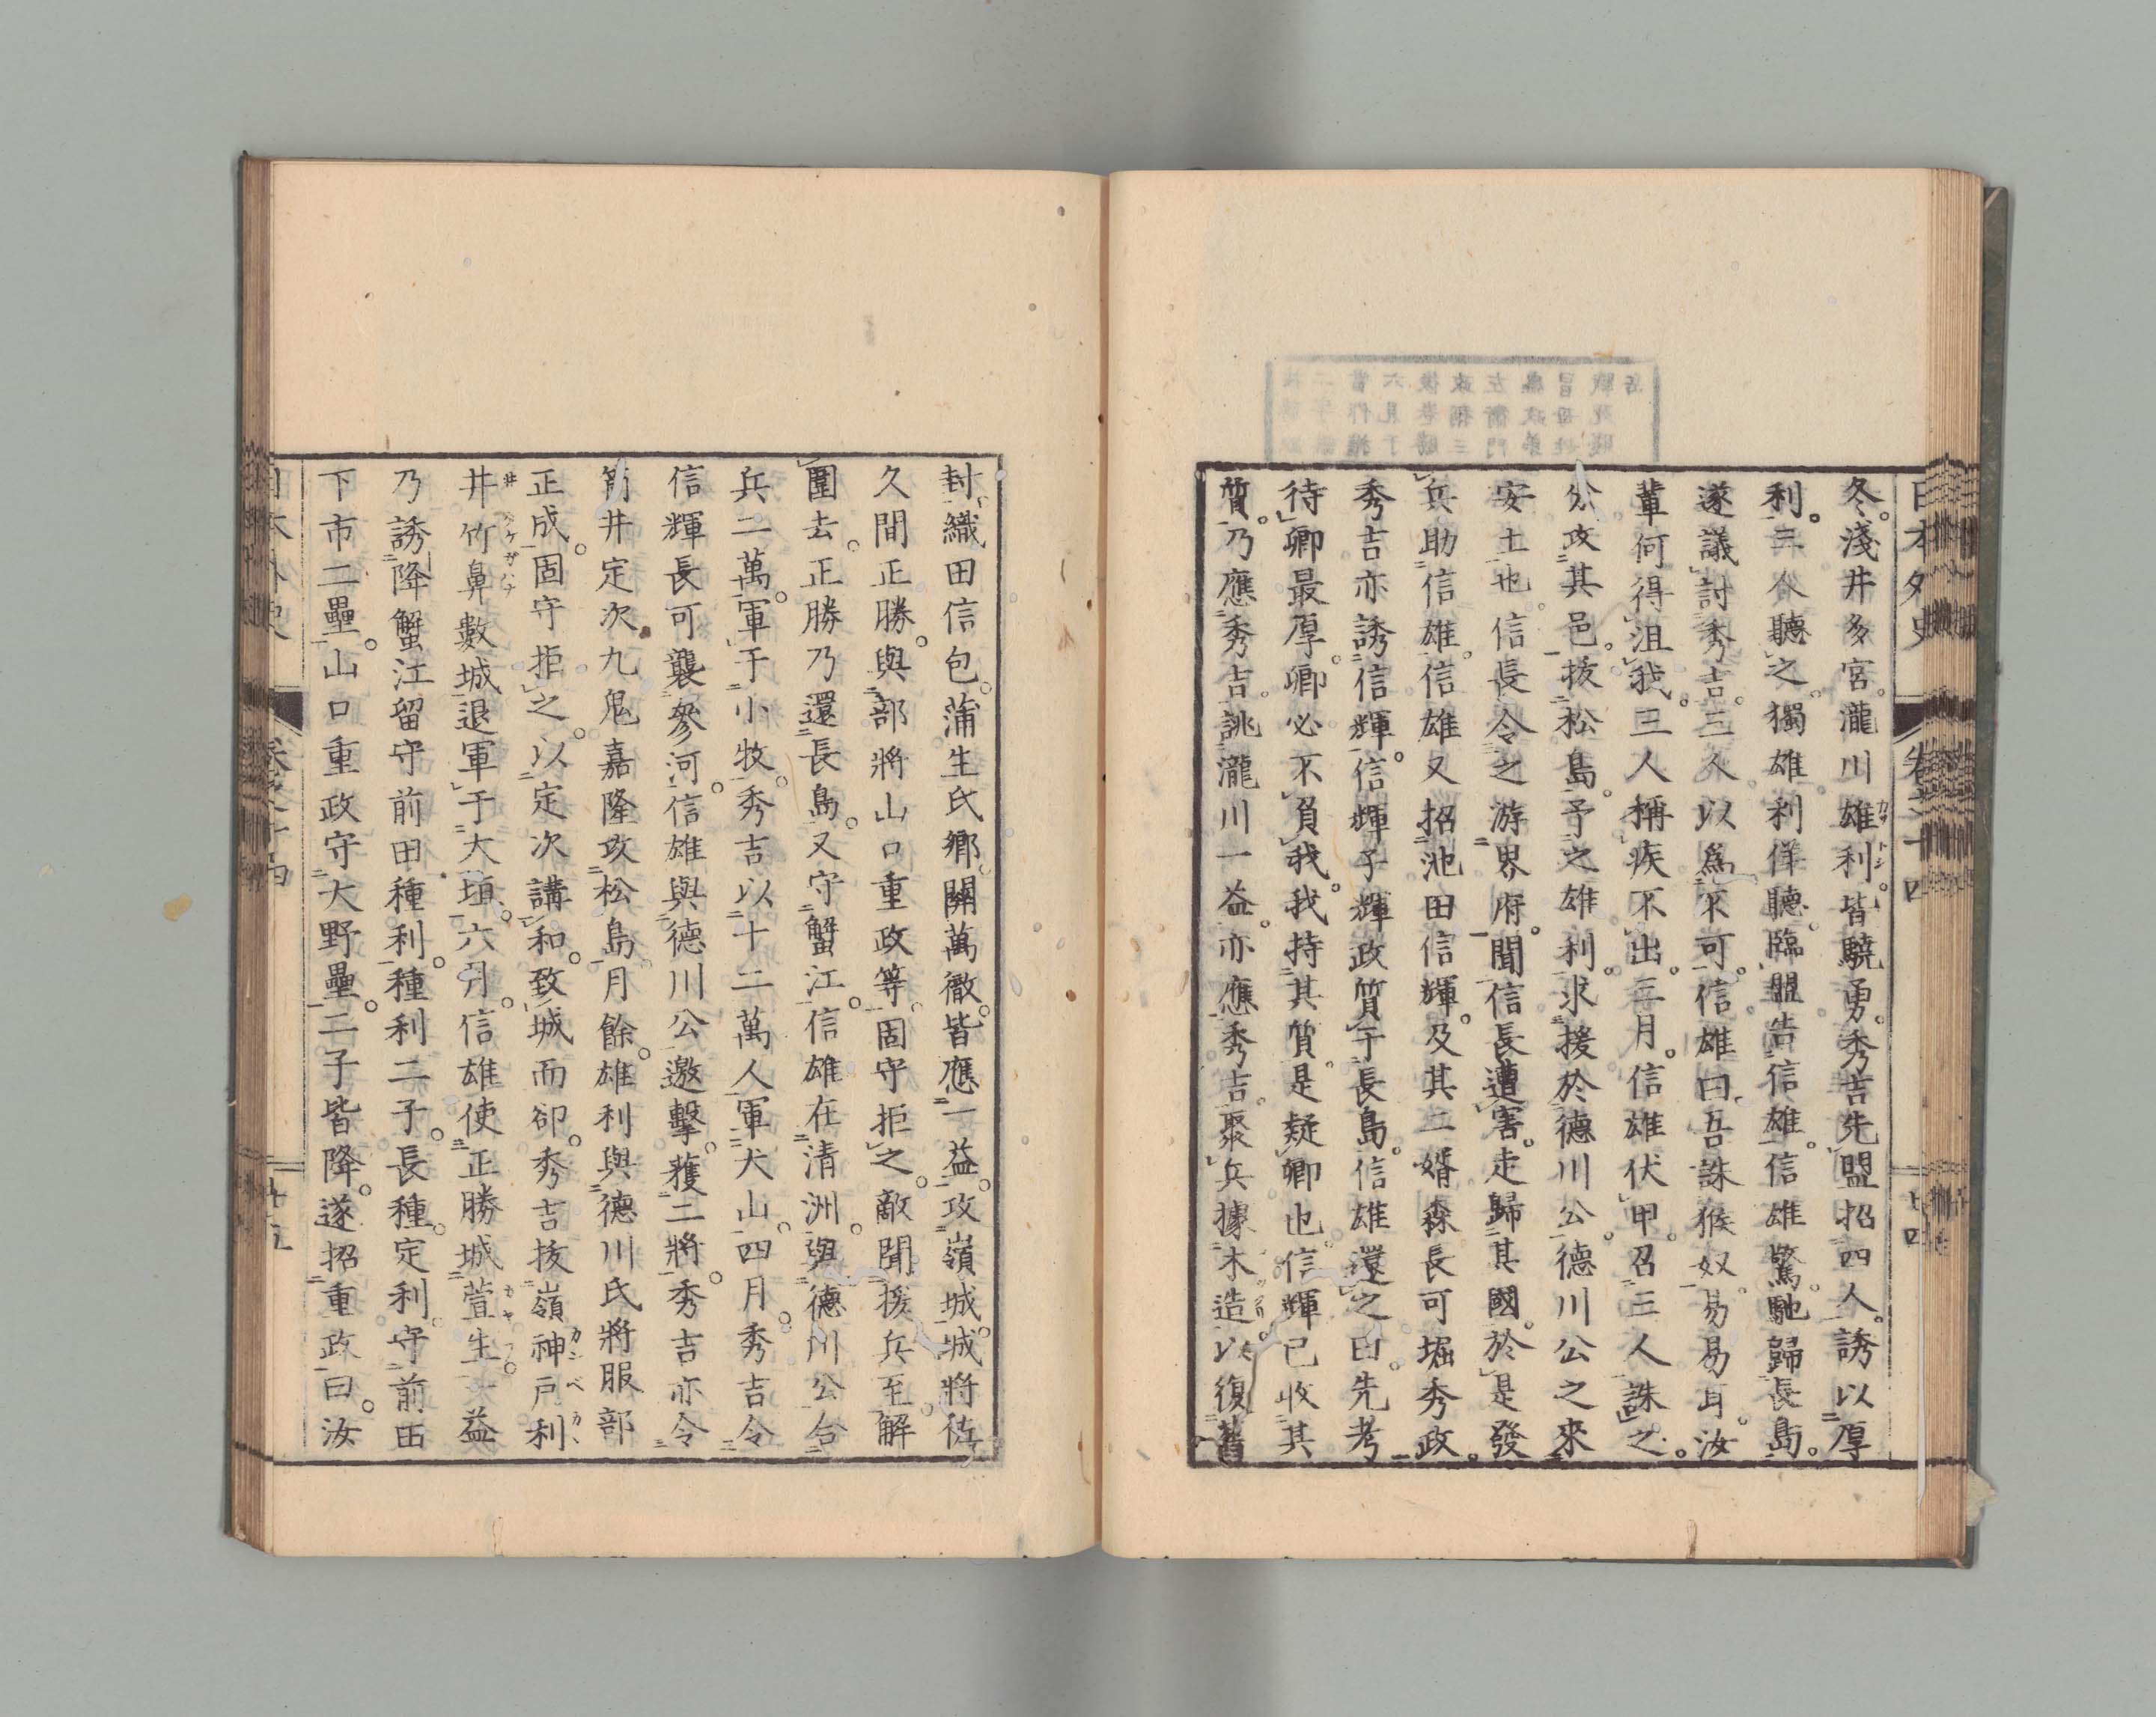 日本外史 卷之十四 七四
冬。淺井多宮。瀧川雄利。皆驍勇。秀吉先盟招四人。誘以厚
利。三人聽之。獨雄利佯聽。臨盟告信雄。信雄驚。馳歸長島。
遂議討秀吉。三人以爲不可。信雄曰吾誅猴奴。易易耳。汝
輩何得沮我。三人稱疾不出。三月。信雄伏甲。召三人誅之。
分攻其邑。拔松島。予之雄利。求援於德川公。德川公之來
安土也。信長令之游界府。聞信長遭害。走歸其國。於是發
兵助信雄。信雄又招池田信輝。及其二婿森長可堀秀政。
秀吉亦誘信輝。信輝子輝政質于長島。信雄還之曰。先考
待卿最厚。卿必不負我。我持其質。是疑卿也。信輝已收其
質。乃應秀吉。誂瀧川一益。亦應秀吉。聚兵據木造。以復舊
封。織田信包。蒲生氏鄉。關萬徹。皆應一益。攻嶺城。城將佐
久間正勝。與部將山口重政等。固守拒之。敵聞援兵至。解
圍去。正勝乃還長島。又守蟹江。信雄在清洲。與德川公合
兵二萬。軍于小牧。秀吉以十二萬人軍犬山。四月。秀吉令
信輝長可襲參河。信雄與德川公邀擊。獲二將。秀吉亦令
筒井定次九鬼嘉隆攻松島。月餘。雄利與德川氏將服部
正成。固守拒之。以定次講和。致城而卻。秀吉拔嶺神戶利
井竹鼻數城退軍于大垣。六月。信雄使正勝城萱生。一益
乃誘降蟹江留守前田種利。種利二子。長種。定利。守前田
下市二壘。山口重政守大野壘。二子皆降。遂招重政曰。汝
日本外史 卷之十四 七十五